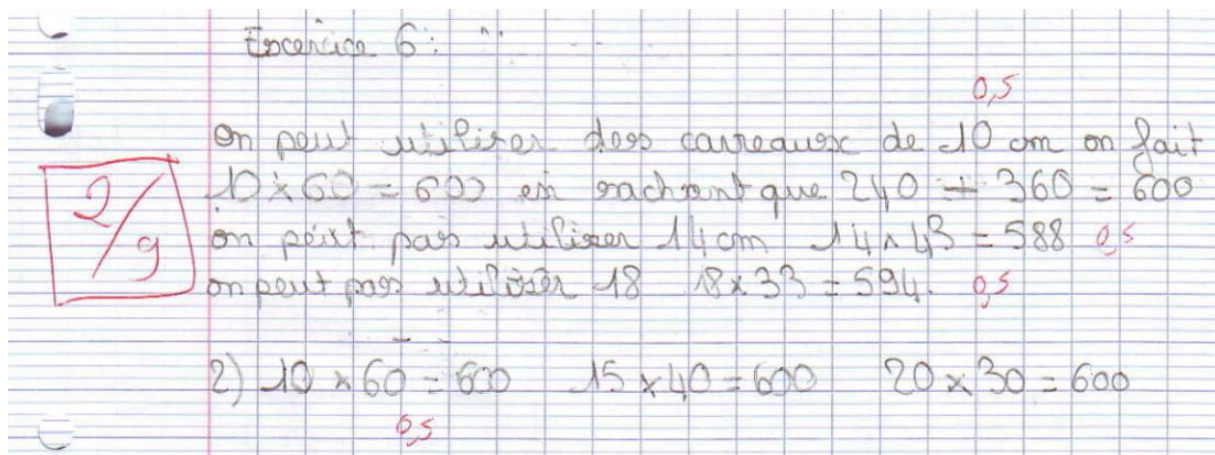 Excercice 6:
0,5
on peut utiliser des carreaux de 10 cm on fait
10 x 60 = 600 en sachant que 240 + 360 = 600
on peut pas utiliser 14 cm 14 x 43 = 588 0,5
on peut pas utiliser 18 18 x 33 = 594. 0,5
2/9
2) 10 x 60 = 600 15 x 40 = 600 20 x 30 = 600
0,5